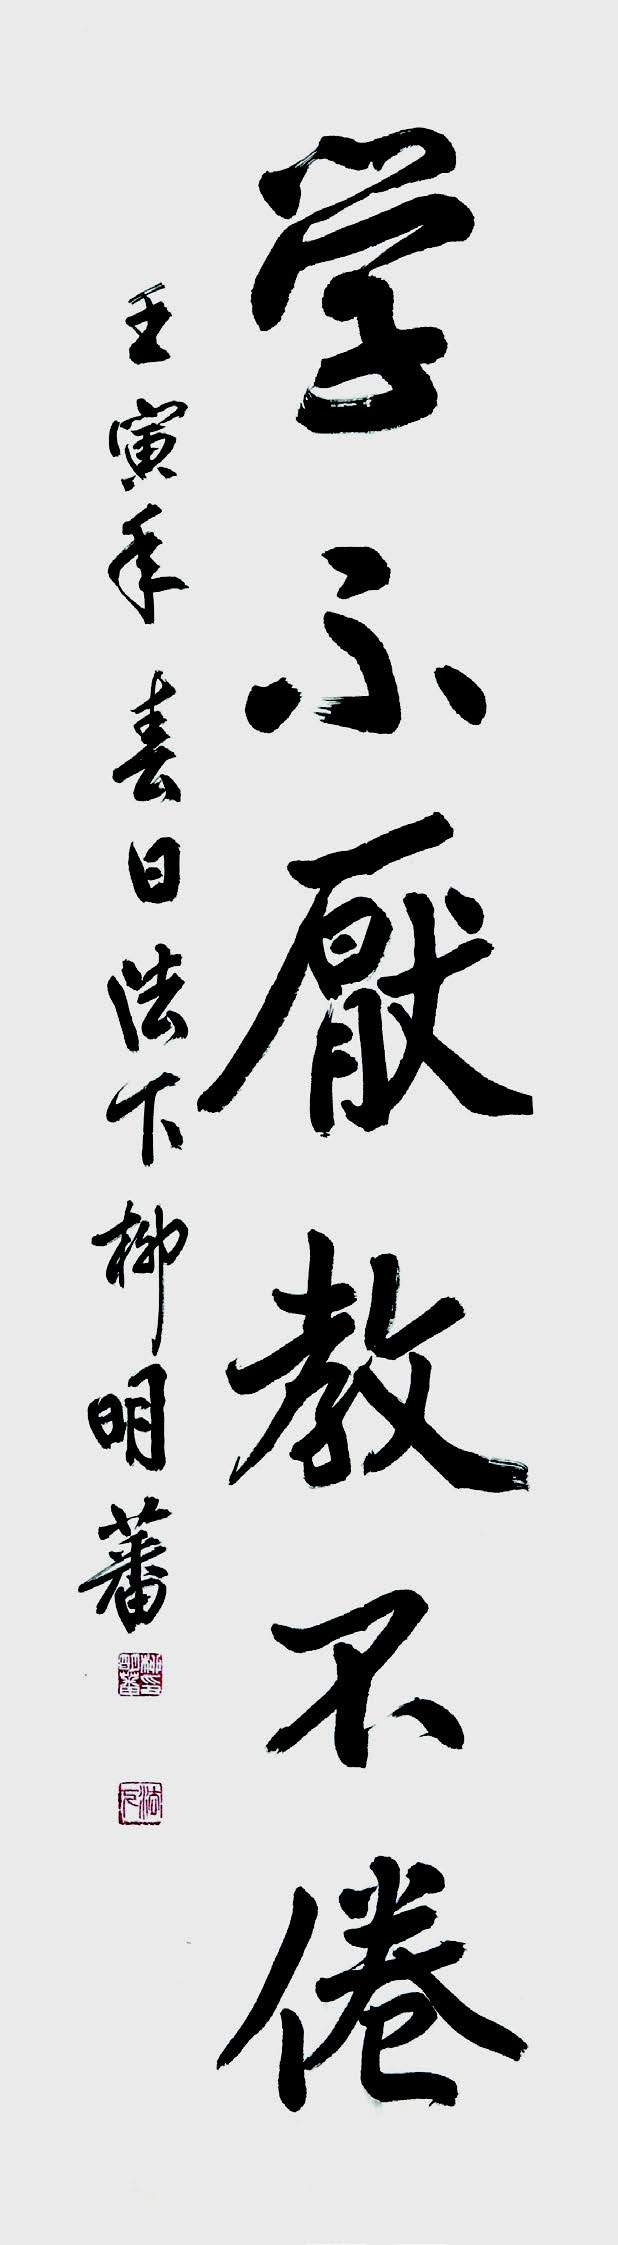 学不厭教不倦
壬寅年春日法下柳明蕃